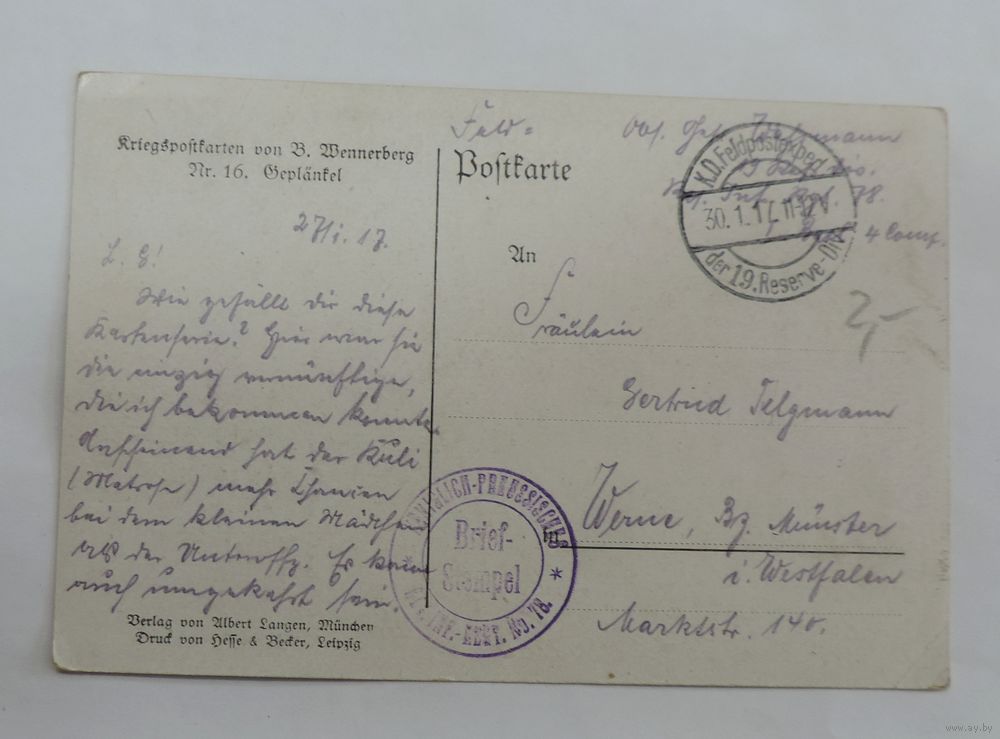 Kriegspostkarten von B. Wennerberg
Nr. 16. Geplänkel
27/1. 17.
L. G!
Wie gefällt dir diese
Kartenserie? Hier war sie
die einzig vernünftige,
die ich bekommen konnte.
Anscheinend hat der Kuli
(Matrose) mehr Chancen
bei dem kleinen Mädchen
als der Unteroffz. Es kann
auch umgekehrt sein.
Verlag von Albert Langen, München
Druck von Hesse & Becker, Leipzig
Feld=
Postkarte
19 Res. Div.
Res. Inf. Rgt. 78.
4 Comp.
K.D. Feldpostexped.
30. 1. 17.
der 19. Reserve-Div.
2,-
An
Fräulein
Gertrud Telgmann
in
Werne, Bz. Münster
i. Westfalen
Marktstr. 140.
KÖNIGLICH-PREUSSISCHES
Brief-
Stempel
RES. INF.-REGT. No. 78.
www.ay.by